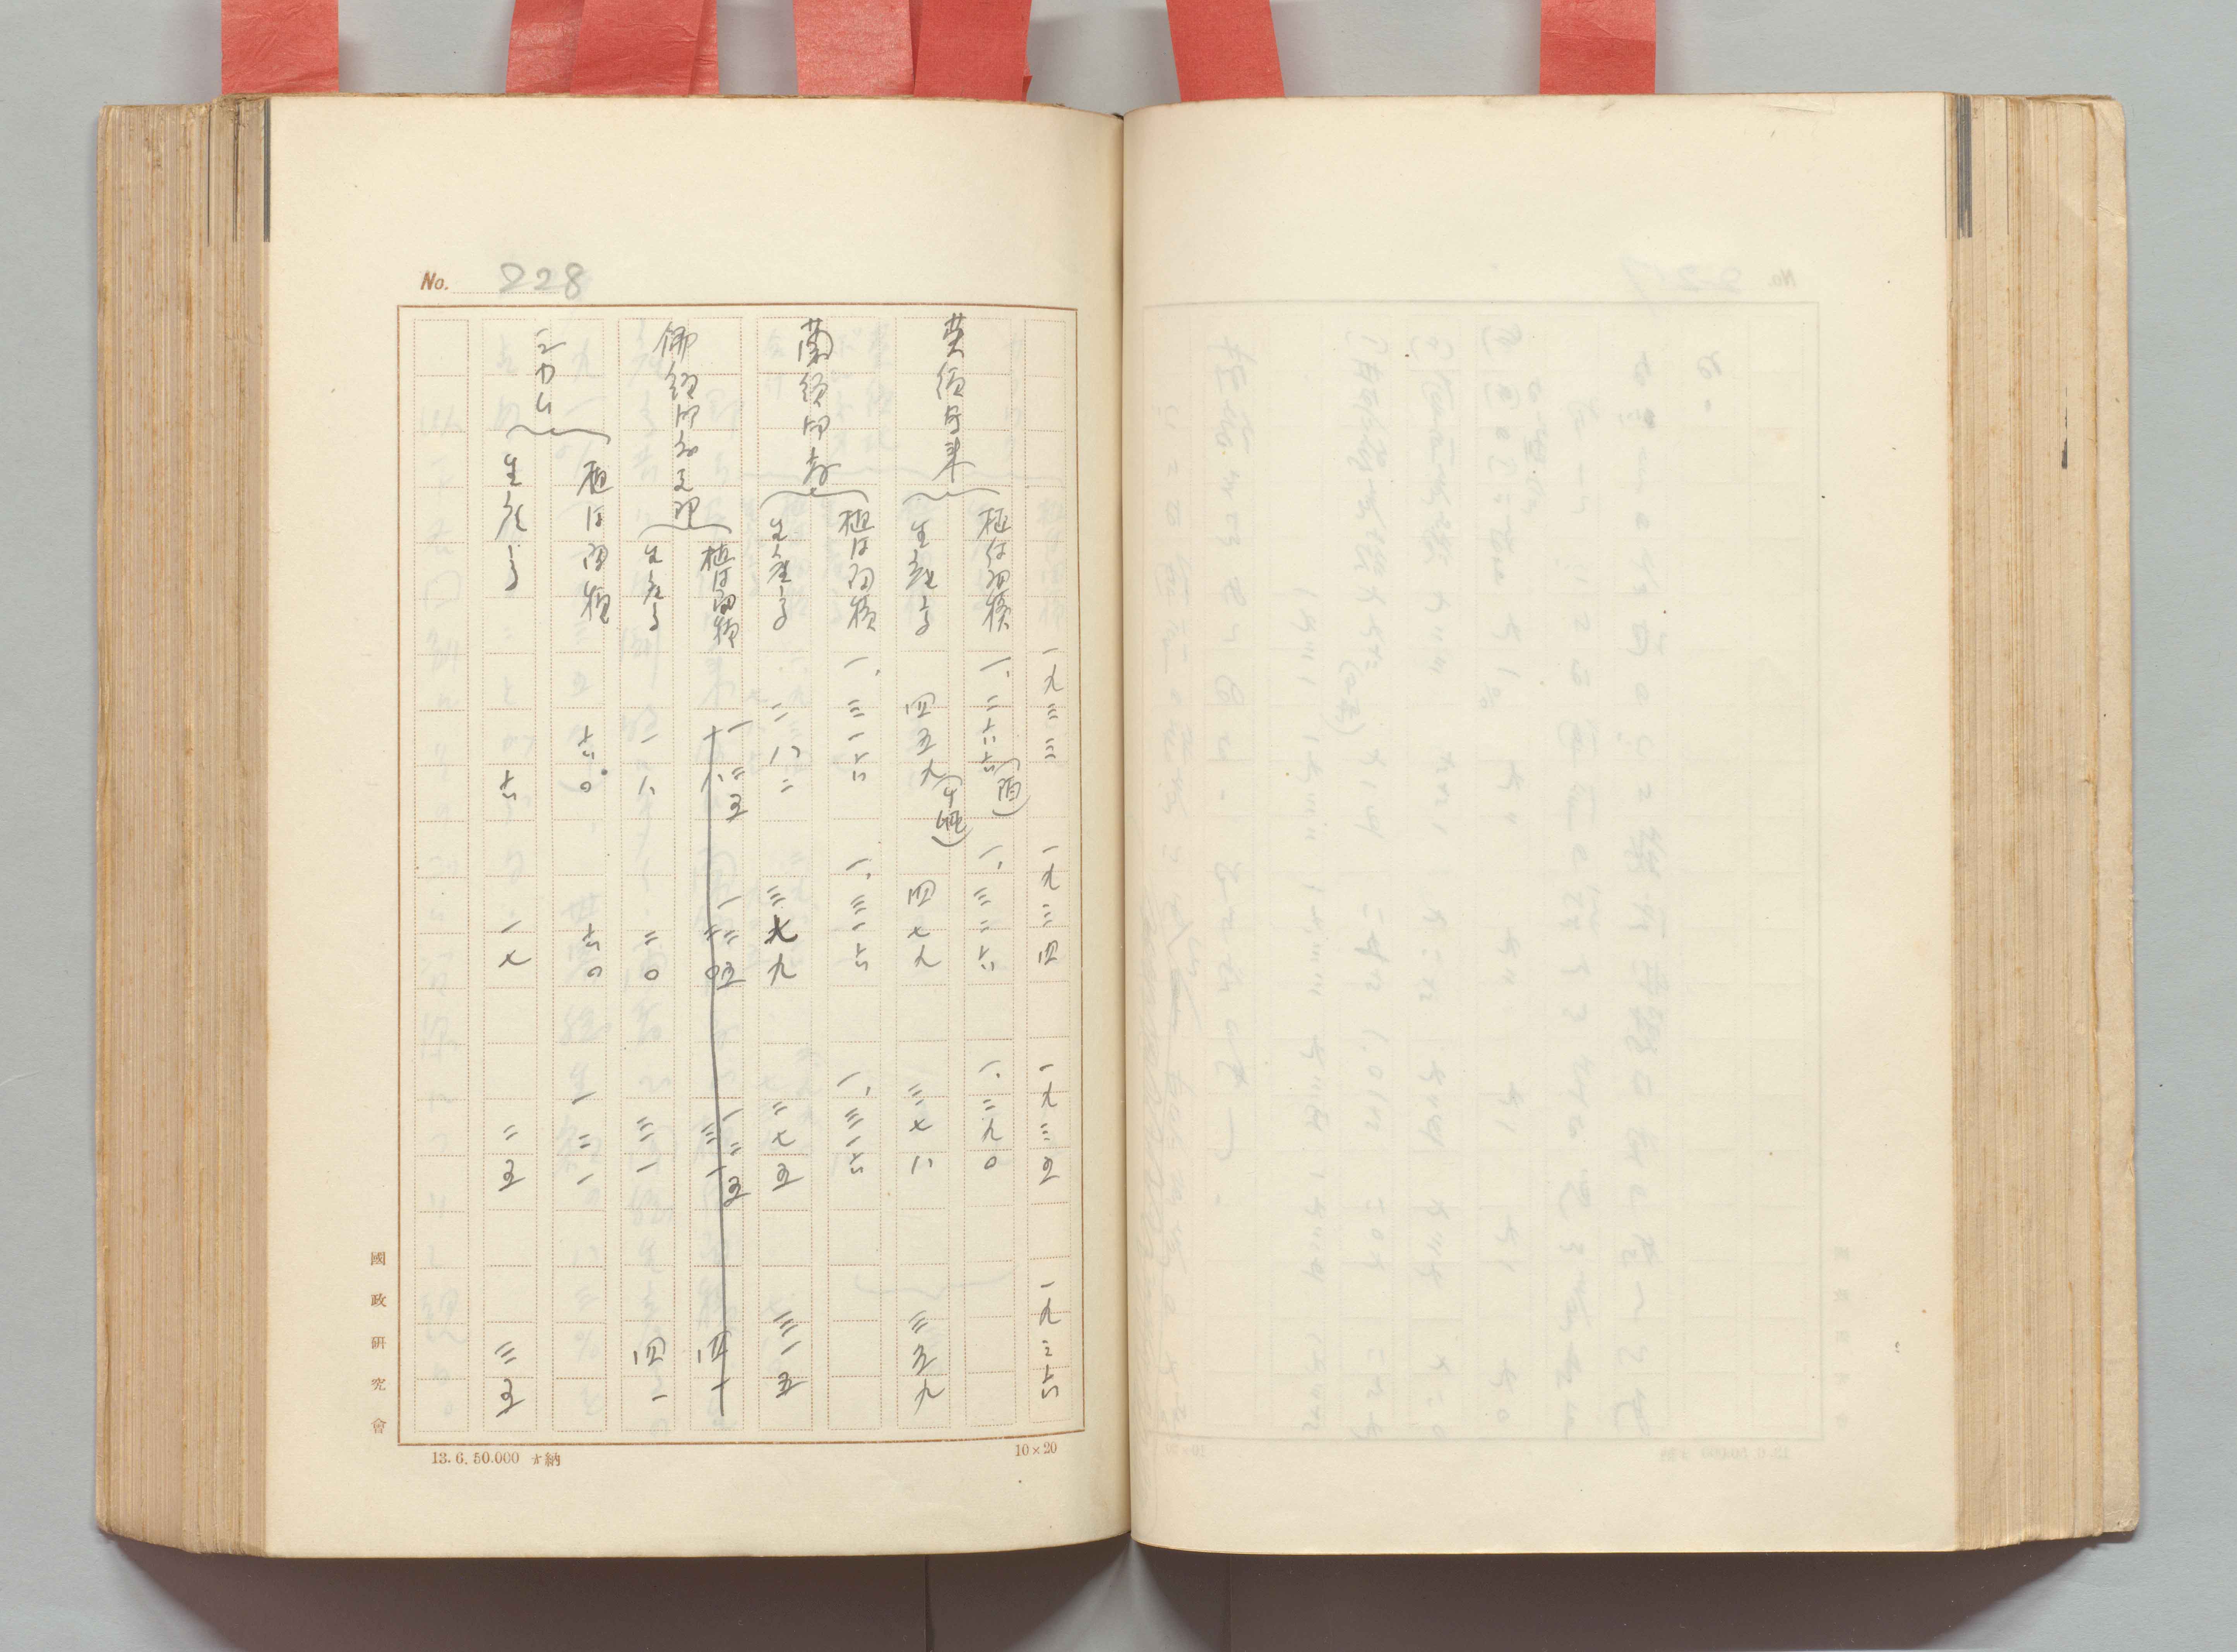 No. 228
一九三三 一九三四 一九三五 一九三六
英領馬来
植付面積 一、二六六(陌) 一、三二六 一、二九〇
生産高 四五九(千瓲) 四七九 三七八 三五九
蘭領印度
植付面積 一、三一六 一、三一六 一、三一六
生産高 二八二 三七九 二七五 三一五
佛領印度支那
植付面積 一三五 一三五 一三五
生産高 一八 二〇 三一 四一
植付面積 六〇 六〇 一二一
生産高 六 一七 二五 三五
國政研究會
13.6.50.000 納
10×20